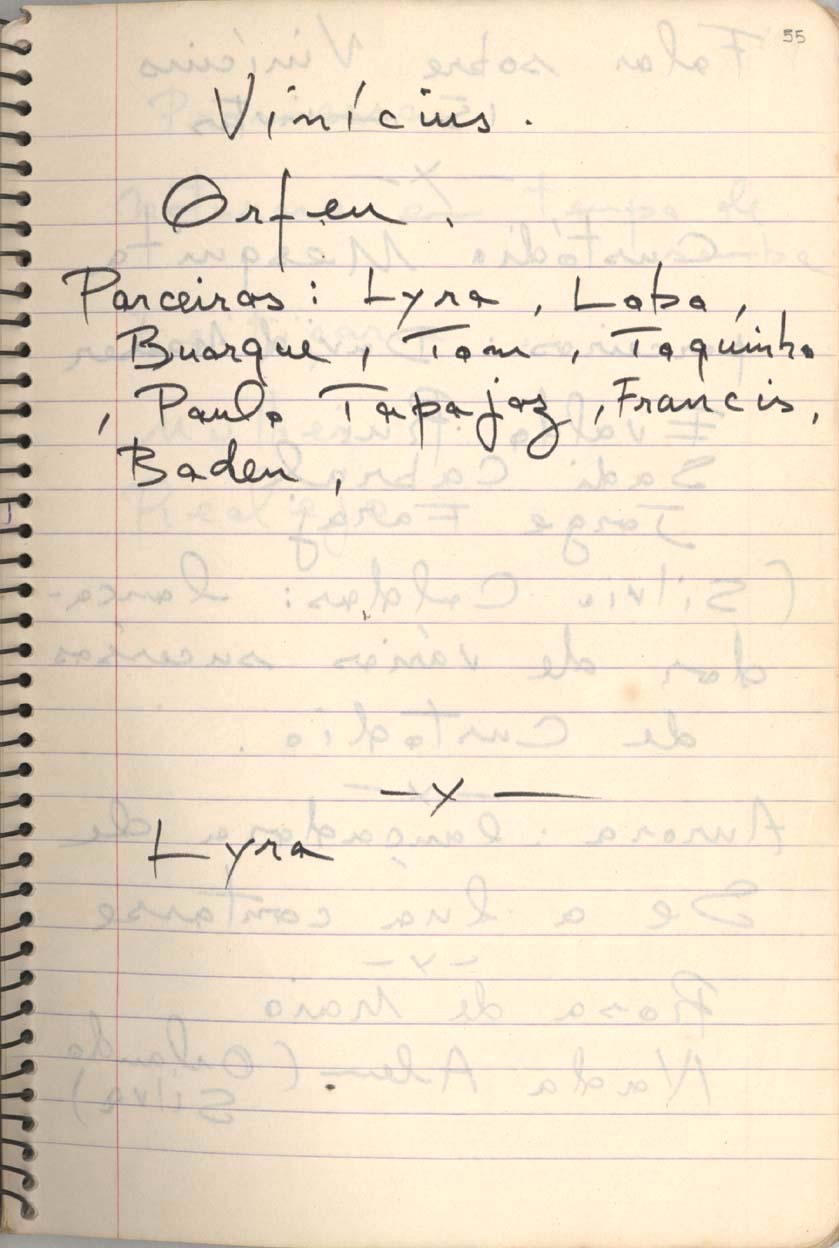 55
Vinícius.
Orfeu.
Parceiros: Lyra, Lobo,
Buarque, Tom, Toquinho
, Paulo Tapajoz, Francis,
Baden,
—x—
Lyra